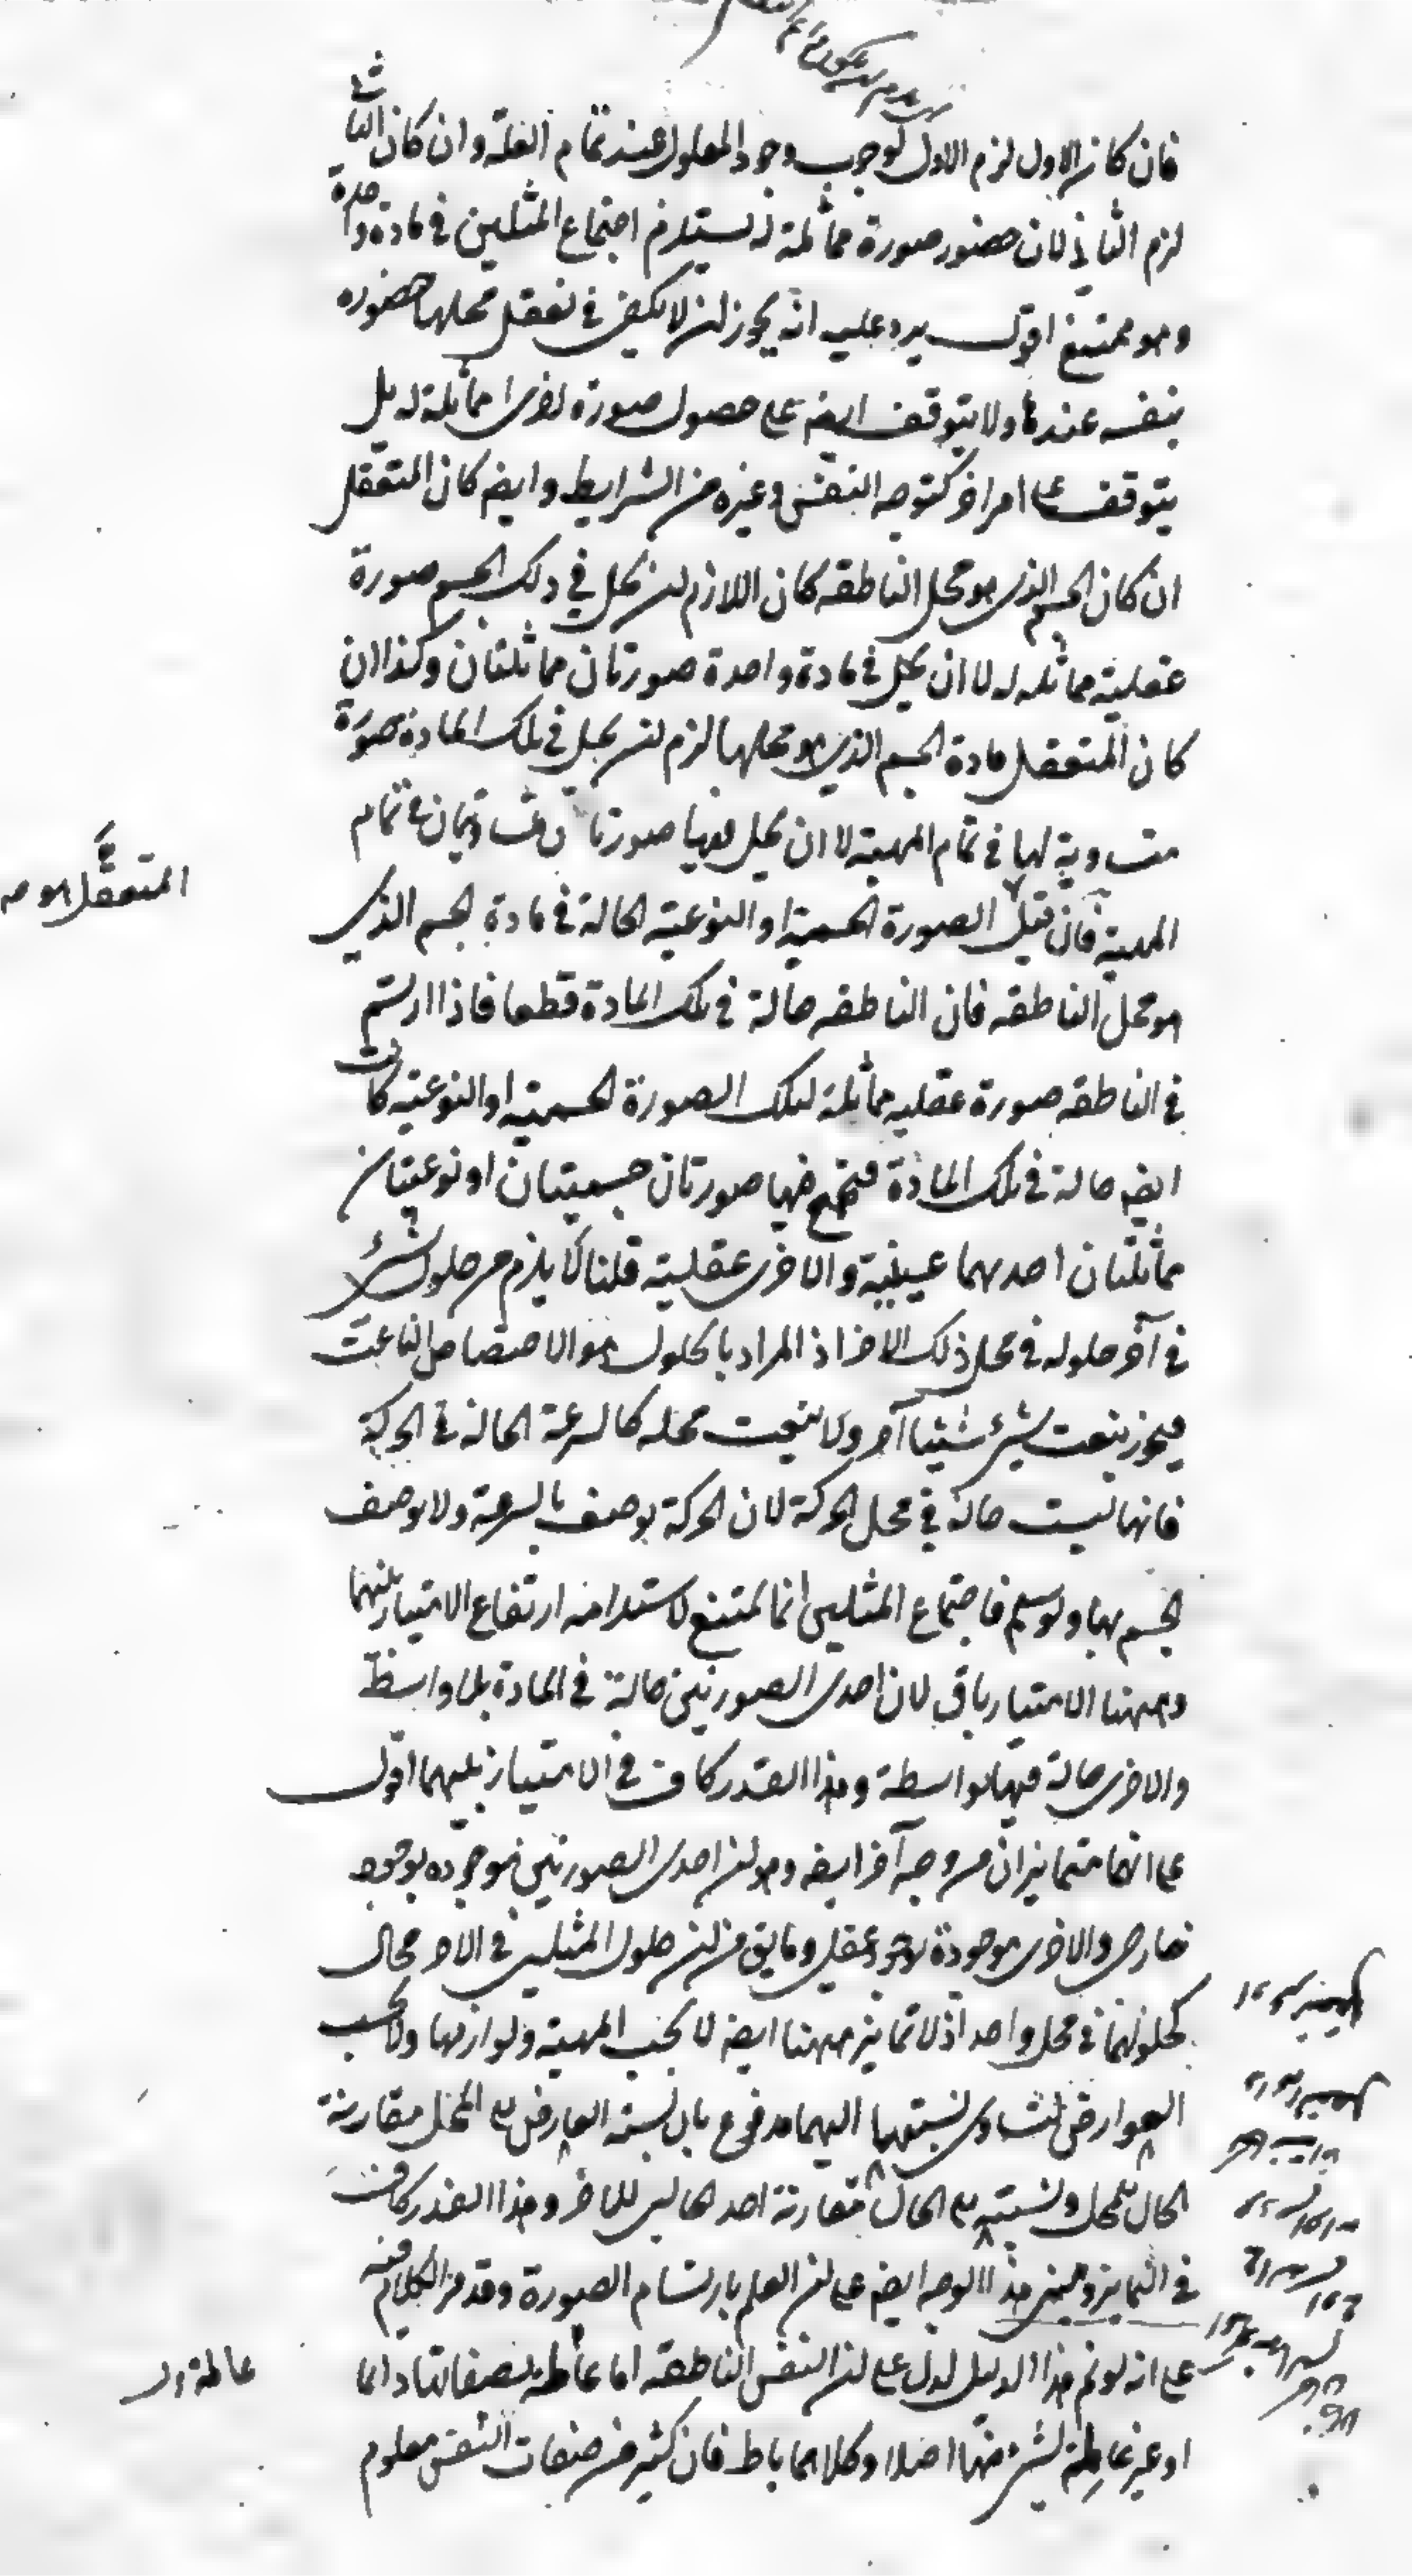 فان كان الاول لزم الاول لوجوب وجود المعلول عند تمام العلة وان كان الثانى
لزم الثانى لان حضور صورة مماثلة له يستلزم اجتماع المثلين فى مادة واحدة
وهو ممتنع اقول يرد عليه انه يجوز ان لا يكفى فى تعقل محلها حضوره
بنفسه عندها ولا يتوقف ايضه على حصول صورة اخرى مماثلة له بل
يتوقف على امر اخر كتوجه النفس وغيره من الشرايط وايضه كان المتعقل
ان كان الجسم الذى هو محل الناطقه كان اللازم ان يحل في ذلك الجسم صورة
عقلية مماثله له لا ان يحل فى مادة واحدة صورتان مماثلتان وكذا ان
كان المتعقل مادة الجسم الذي هو محلها لزم ان يحل فى تلك المادة صورة
متساوية لها فى تمام المهية لا ان يحل فيها صورتان متساويتان فى تمام
المهية فان قيل الصورة الجسمية او النوعية الحالة فى مادة الجسم الذي
المتعقل هو
هو محل الناطقه فان الناطقه حالة فى تلك المادة قطعا فاذا ارتسم
فى الناطقه صورة عقليه مماثلة لتلك الصورة الجسمية او النوعية كانت
ايضه حالة فى تلك المادة فيجتمع فيها صورتان جسميتان او نوعيتان
مماثلتان احديهما عينية والاخرى عقلية قلنا لا يلزم من حلول شئ
فى آخر حلوله فى محل ذلك الاخر اذ المراد بالحلول هو الاختصاص الناعت
فيجوز ينعت شئ شيئا آخر ولا ينعت محله كالسرعة الحالة فى الحركة
فانها ليست حالة في محل الحركة لان الحركة يوصف بالسرعة ولا يوصف
الجسم بها ولو سلم فاجتماع المثلين انما يمتنع لاستلزامه ارتفاع الامتياز بينهما
وههنا الامتياز باق لان احدى الصورتين حالة فى المادة بلا واسطة
والاخرى حالة فيها بواسطة وهذا القدر كاف فى الامتياز بينهما اقول
على انهما متمايزان من وجه آخر ايضه وهو ان احدى الصورتين موجوده بوجود
خارجى والاخرى موجودة بوجود عقلى وما يق من ان حلول المثلين فى الاخر محال
كحلولهما فى محل واحد اذ لا تمايز ههنا ايضه لا بحسب المهية ولوازمها ولا بحسب
العوارض لتساوى نسبتها اليهما مدفوع بان نسبة العارض الى المحل مقارنة
الحال للمحل ونسبته الى الحال مقارنة احد الحالين للاخر وهذا القدر كاف
فى التمايز ومبنى هذا الوجه ايضه على ان العلم بارتسام الصورة وقد مر الكلام فيه
على انه لو تم هذا الدليل لدل على ان النفس الناطقه اما عاقلة لصفاتها دائما
او غير عاقلة لشئ منها اصلا وكلاهما باط فان كثير من صفات النفس معلوم